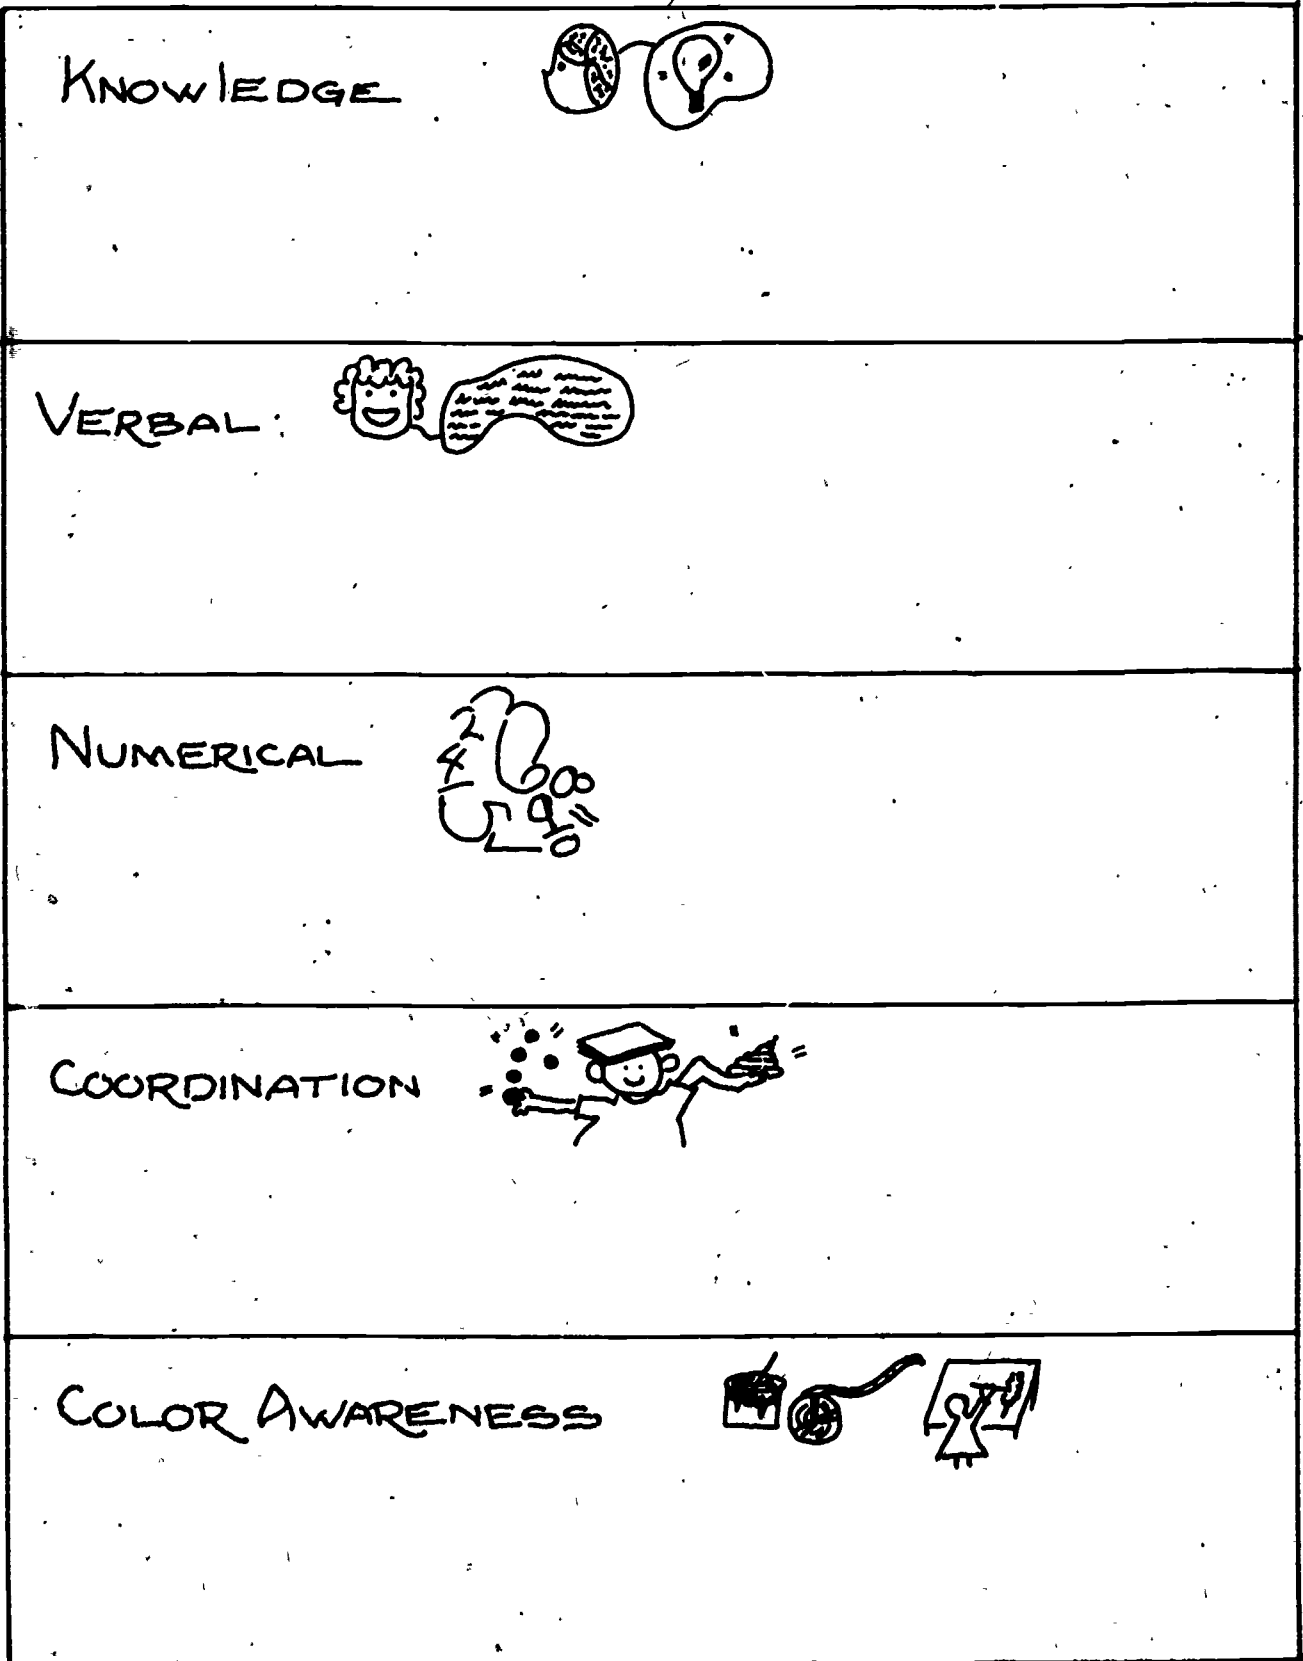 KNOWLEDGE
VERBAL:
NUMERICAL
2
4
5
9
COORDINATION
COLOR AWARENESS